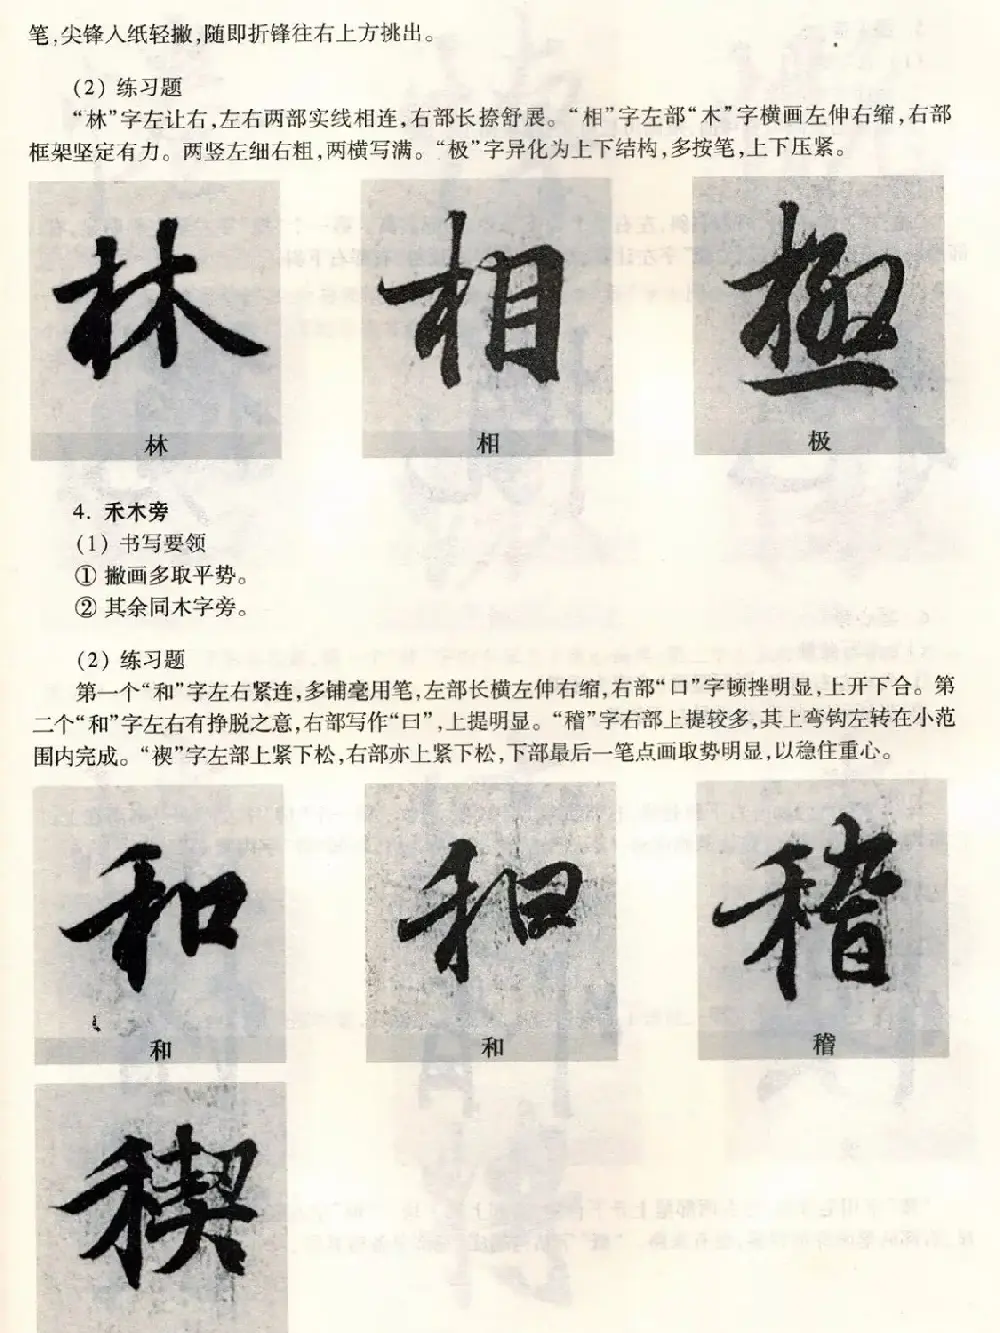 笔,尖锋入纸轻撇,随即折锋往右上方挑出。
(2) 练习题
“林”字左让右,左右两部实线相连,右部长捺舒展。“相”字左部“木”字横画左伸右缩,右部
框架坚定有力。两竖左细右粗,两横写满。“极”字异化为上下结构,多按笔,上下压紧。
林 相 極
林 相 极
4. 禾木旁
(1) 书写要领
① 撇画多取平势。
② 其余同木字旁。
(2) 练习题
第一个“和”字左右紧连,多铺毫用笔,左部长横左伸右缩,右部“口”字顿挫明显,上开下合。第
二个“和”字左右有挣脱之意,右部写作“曰”,上提明显。“稽”字右部上提较多,其上弯钩左转在小范
围内完成。“禊”字左部上紧下松,右部亦上紧下松,下部最后一笔点画取势明显,以稳住重心。
和 和 稽
和 和 稽
禊